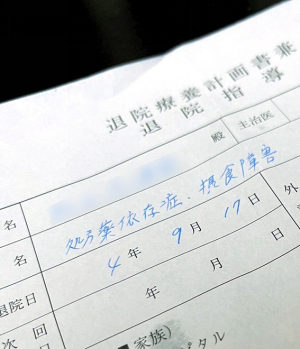 退院療養計画書兼
退院指導
殿 主治医
名
名 処方薬依存症、摂食障害
退院日 4年 9月 17日 外
次回 年 月 日
家族)
タル